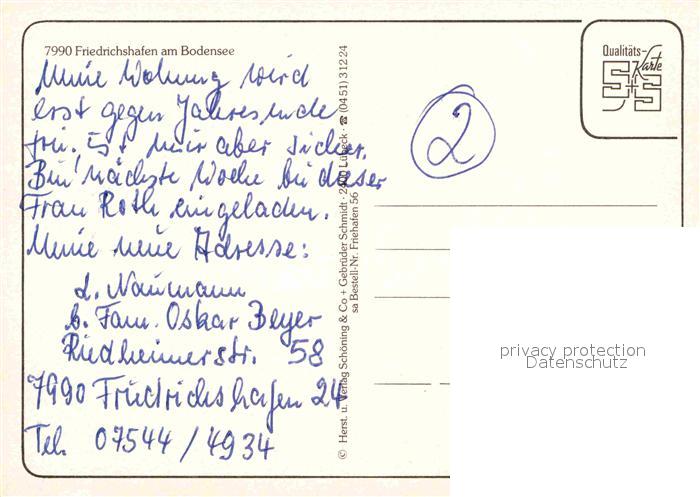 7990 Friedrichshafen am Bodensee
Meine Wohnung wird
erst gegen Jahresende
frei, ist mir aber sicher.
Bin nächste Woche bei dieser
Frau Roth eingeladen.
Meine neue Adresse:
L. Naumann
b. Fam. Oskar Beyer
Riedheimerstr. 58
7990 Friedrichshafen 24
Tel. 07544 / 4934
© Herst. u. Verlag Schöning & Co + Gebrüder Schmidt · 2400 Lübeck · ☎ (04 51) 3 12 24
sa Bestell-Nr. Friehafen 56
2
Qualitäts-
Karte
S+S
privacy protection
Datenschutz